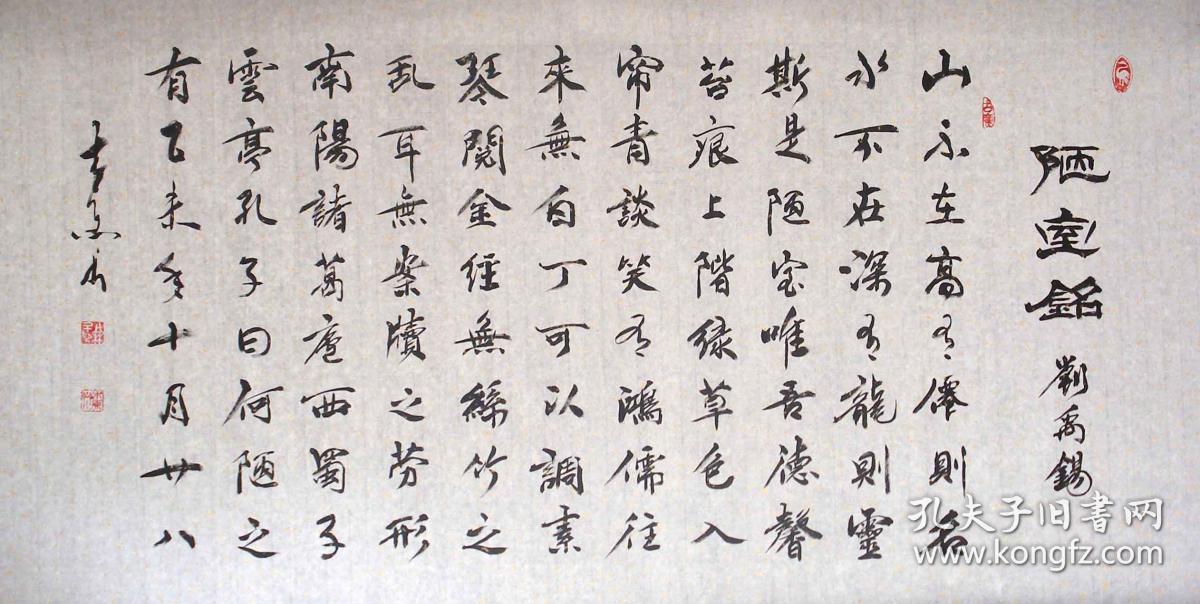 陋室銘 劉禹錫
山不在高有僊則名
水不在深有龍則靈
斯是陋室唯吾德馨
苔痕上階緑草色入
帘青談笑有鴻儒往
來無白丁可以調素
琴閱金經無絲竹之
乱耳無案牘之劳形
南陽諸葛庐西蜀子
雲亭孔子曰何陋之
有乙未年十月廿八
孔夫子旧书网
www.kongfz.com